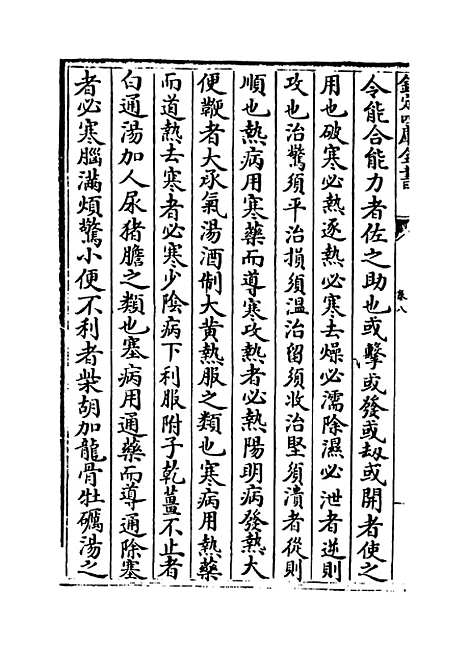 欽定四庫全書
卷八
令能合能力者佐之助也或擊或發或刼或開者使之
用也破寒必熱逐熱必寒去燥必濡除濕必泄者逆則
攻也治驚須平治損須溫治留須收治堅須潰者從則
順也熱病用寒藥而導寒攻熱者必熱陽明病發熱大
便鞕者大承氣湯酒制大黃熱服之類也寒病用熱藥
而道熱去寒者必寒少陰病下利服附子乾薑不止者
白通湯加人尿猪膽之類也塞病用通藥而導通除塞
者必寒胷滿煩驚小便不利者柴胡加龍骨牡礪湯之